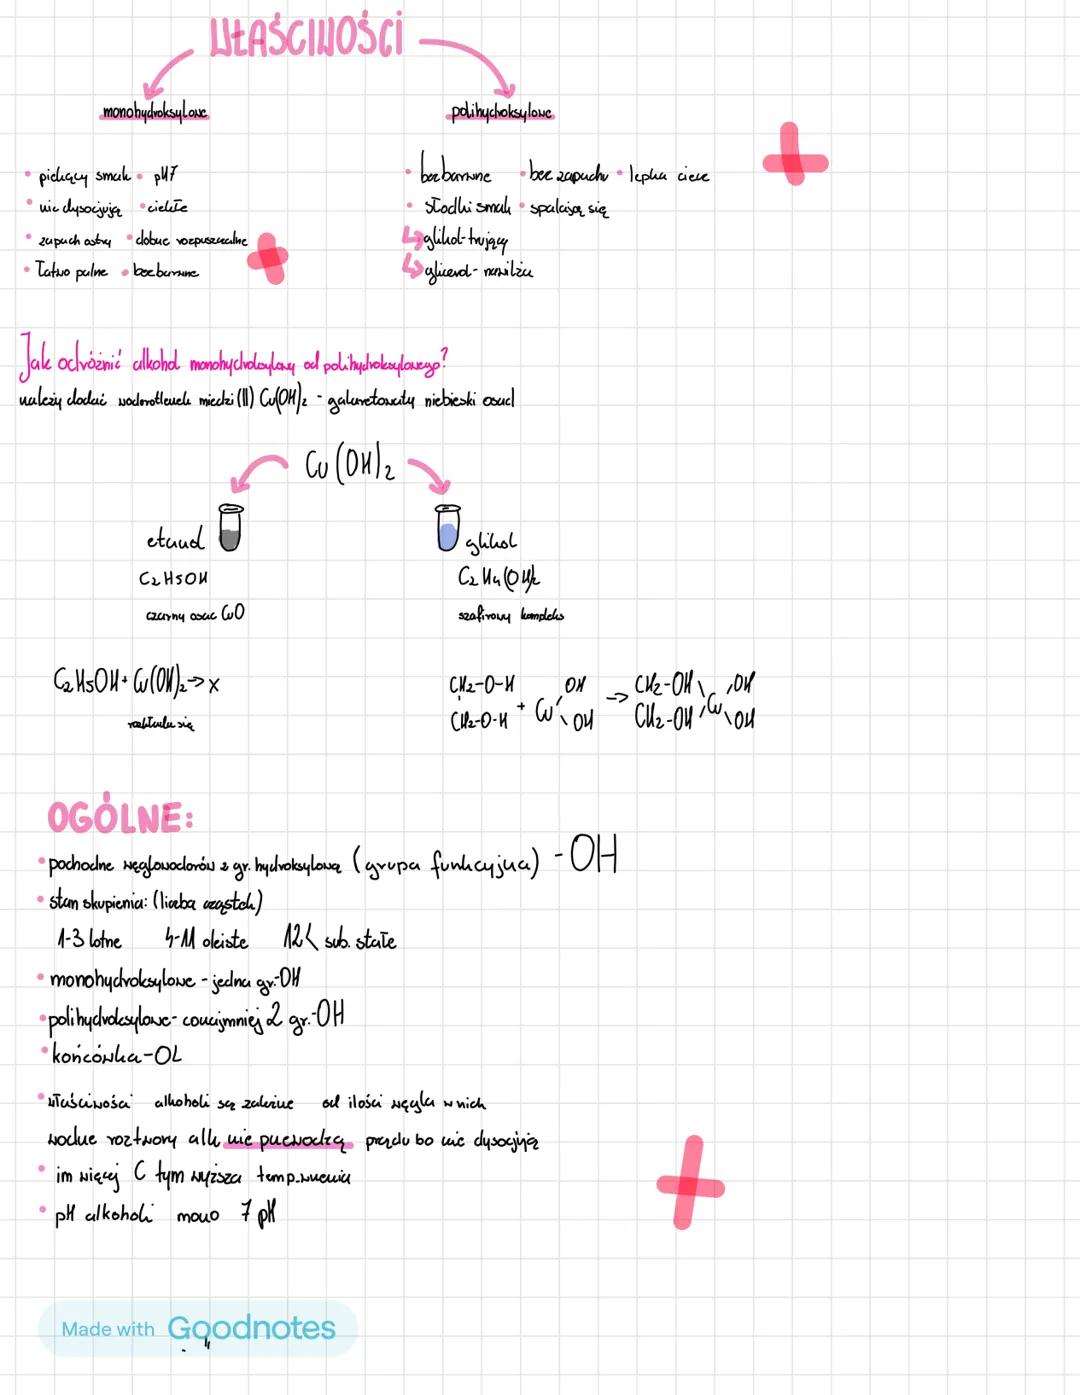 WŁAŚCIWOŚCI
monohydroksylowe
polihydroksylowe
• piekący smak • pH7
• nie dysocjują • ciekłe
• zapach ostry • dobrze rozpuszczalne
• łatwo palne • bezbarwne
• bezbarwne • bez zapachu • lepka ciecz
• słodki smak • spalają się
↳ glikol-trujący
↳ glicerol- nawilża
Jak odróżnić alkohol monohydroksylowy od polihydroksylowego?
należy dodać wodorotlenek miedzi (II) Cu(OH)₂ - galaretowaty niebieski osad
Cu(OH)₂
etanol
C₂H5OH
czarny osad CuO
glikol
C₂H₄(OH)₂
szafirowy kompleks
C₂H5OH + Cu(OH)₂ → x
rozkłada się
CH₂-O-H OH CH₂-OH \ /OH
+ Cu → Cu
CH₂-O-H \ OH CH₂-OH / \OH
OGÓLNE:
• pochodne węglowodorów z gr. hydroksylową (grupa funkcyjna) -OH
• stan skupienia: (liczba cząstek)
1-3 lotne 4-11 oleiste 12< sub. stałe
• monohydroksylowe - jedna gr.-OH
• polihydroksylowe- conajmniej 2 gr.-OH
• końcówka-OL
• właściwości alkoholi są zależne od ilości węgla w nich
wodne roztwory alk. nie przewodzą prądu bo nie dysocjują
• im więcej C tym wyższa temp.wrzenia
• pH alkoholi mono 7 pH
Made with Goodnotes